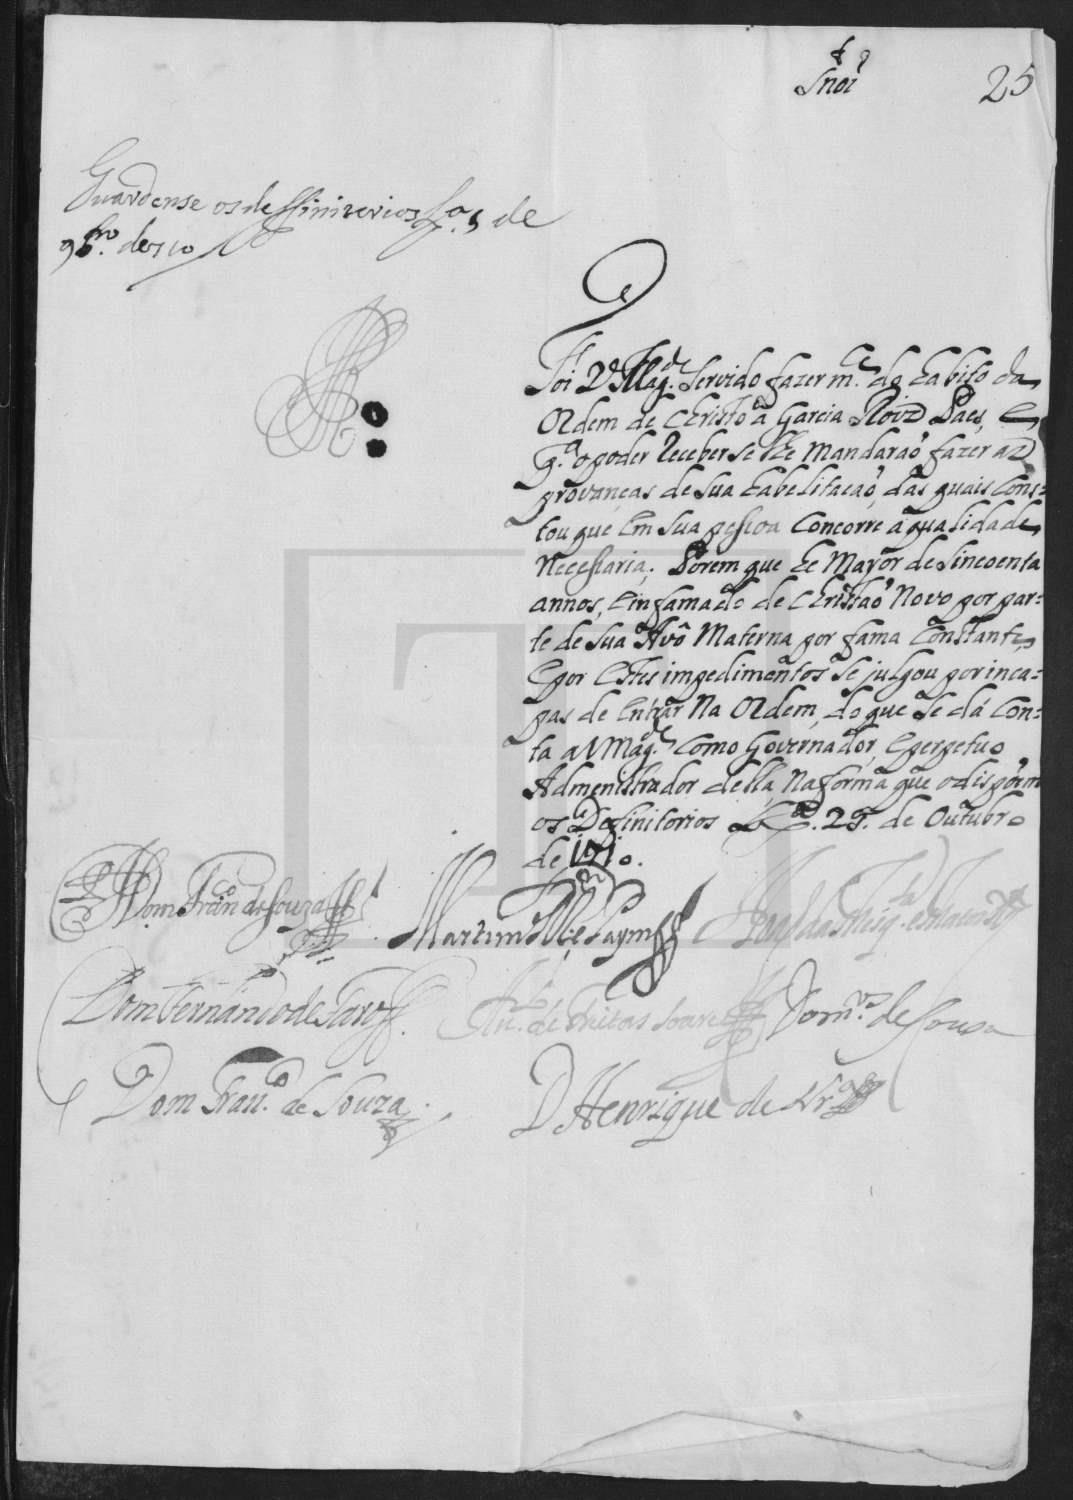 Snõr
25
Guardense os deffinitorios Lxa. 5 de
9bro. de 710
Foi V. Magde. servido fazer mce. do habito da
Ordem de Christo a Garcia Roiz Paes, e
pa. o poder receber se lhe mandarão fazer as
provanças de sua habelitação, das quais cons=
tou que em sua pessoa concorre a qualidade
necessaria; Porem que he mayor de sincoenta
annos, e infamado de Christão novo por par=
te de sua Avô materna por fama constante,
e por estes impedimentos se julgou por inca=
pas de entrar na Ordem, do que se dá con=
ta a V Magde. como Governador, e perpetuo
Admenistrador della, na forma que o dispoem
os Definitorios Lxa. 29. de Outubro
de 1710.
Dom Franco. de Souza
Martim Paym
Dom Fernando de Faro
Anto. de Freitas Soares
Domos. de Sousa
Dom Franco. de Souza
D Henrique de